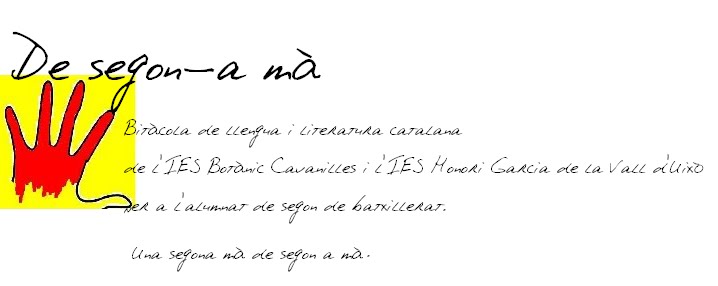 De segon-a mà
Bitàcola de llengua i literatura catalana
de l'IES Botànic Cavanilles i l'IES Honori Garcia de la Vall d'Uixó
per a l'alumnat de segon de batxillerat.
Una segona mà de segon a mà.